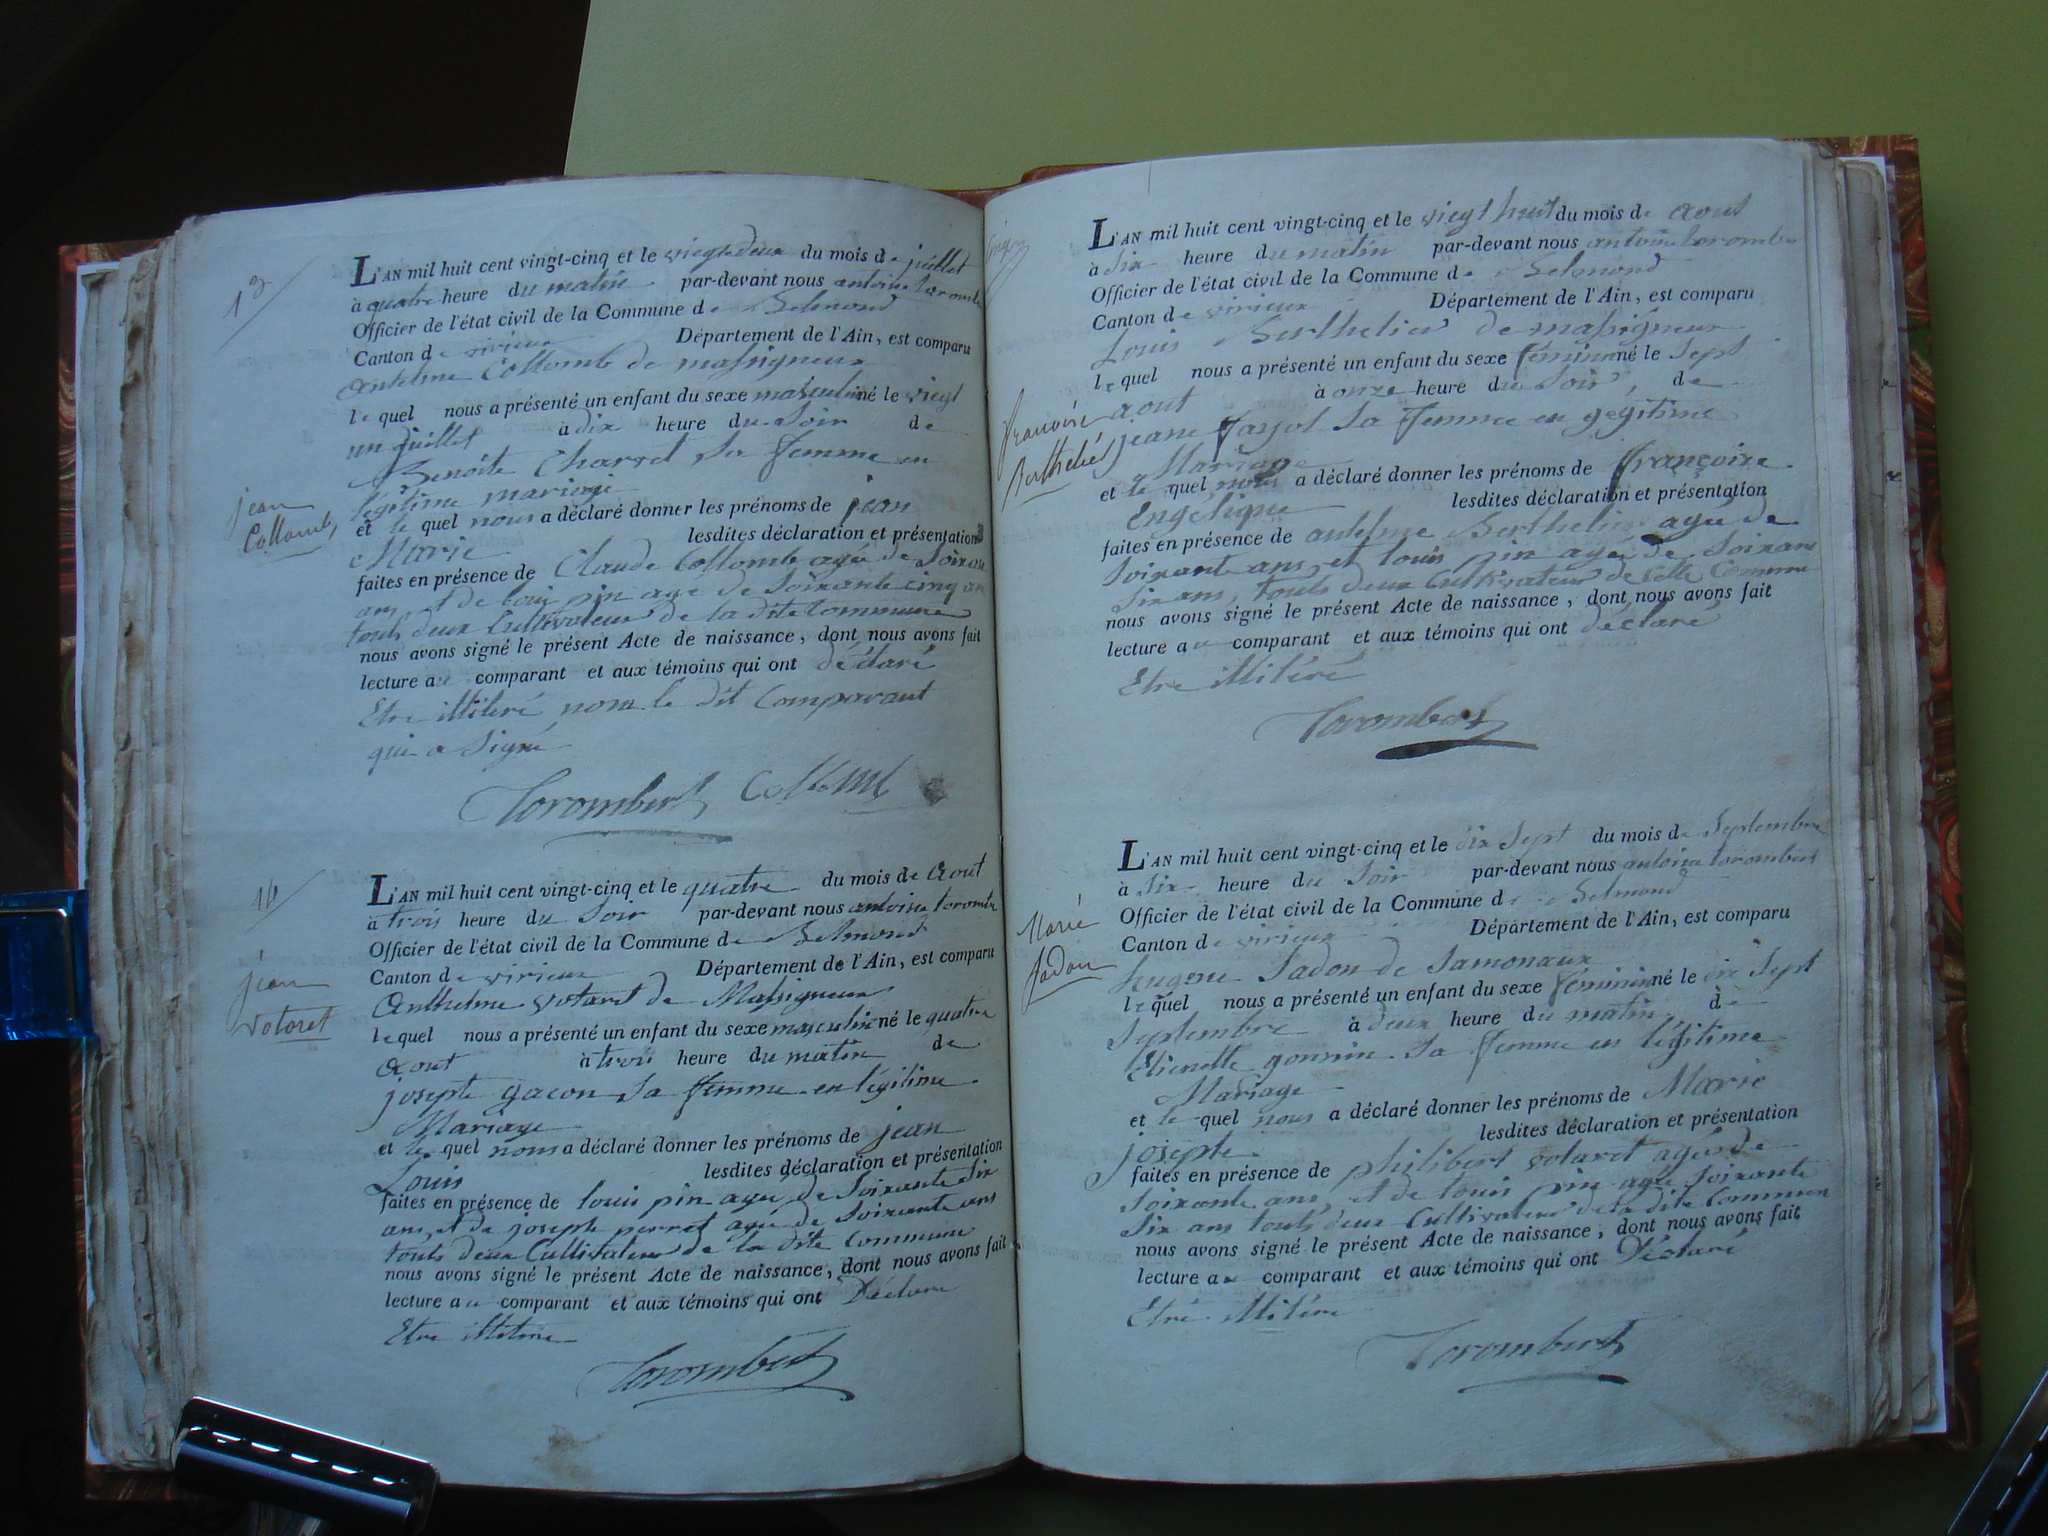 13
L'AN mil huit cent vingt-cinq et le viegt deux du mois de juillet
à quatre heure du matin par-devant nous antoine torombe
Officier de l'état civil de la Commune de Belmond
Canton de virieux Département de l'Ain, est comparu
antelme Collomb de massigneux
lequel nous a présenté un enfant du sexe masculin né le viegt
un juillet à dix heure du Soir de
Benoite Charret Sa femme en
légitime mariage
jean
Collomb
et le quel nous a déclaré donner les prénoms de jean
Marie lesdites déclaration et présentation
faites en présence de Claude Collomb agé de Soixan
ans, et de loui pin agé de Soixante cinq an
touts deux Cultivateur de la dite Commune
nous avons signé le présent Acte de naissance, dont nous avons fait
lecture au comparant et aux témoins qui ont déclaré
Etre illiteré non le dit Comparant
qui a Signé
Torombert Collomb
14
L'AN mil huit cent vingt-cinq et le quatre du mois de Aout
à trois heure du Soir par-devant nous antoine torombe
Officier de l'état civil de la Commune de Belmond
Canton de virieux Département de l'Ain, est comparu
jean
votaret
Anthelme votaret de Massigneux
lequel nous a présenté un enfant du sexe masculin né le quatre
Aout à trois heure du matin de
josepte gacon Sa femme en légitime
Mariage
et le quel nous a déclaré donner les prénoms de jean
Louis lesdites déclaration et présentation
faites en présence de louis pin agé de Soixante Six
ans, et de josepte perret agé de Soixante ans
touts deux Cultivateur de la dite Commune
nous avons signé le présent Acte de naissance, dont nous avons fait
lecture au comparant et aux témoins qui ont Déclare
Etre
Torombert
L'AN mil huit cent vingt-cinq et le viegt huit du mois de Aout
à Six heure du matin par-devant nous antoine torombe
Officier de l'état civil de la Commune de Belmond
Canton de virieux Département de l'Ain, est comparu
Louis Berthelier de massigneux
lequel nous a présenté un enfant du sexe féminin né le Sept
aout à onze heure du Soir, de
françoise
Berthelier
jeane fayol Sa femme en légitime
Mariage
et le quel nous a déclaré donner les prénoms de françoize
Engélique lesdites déclaration et présentation
faites en présence de antelme Berthelier agé de
Soixant ans, et louis pin agé de Soixant
Six ans, touts deux Cultivateur de Cette Commune
nous avons signé le présent Acte de naissance, dont nous avons fait
lecture au comparant et aux témoins qui ont déclaré
Etre illitéré
Torombert
L'AN mil huit cent vingt-cinq et le dix Sept du mois de Septembre
à Six heure du Soir par-devant nous antoine torombert
Officier de l'état civil de la Commune de Belmond
Canton de virieux Département de l'Ain, est comparu
Marie
jadou
hugene Jadou de Samonaux
lequel nous a présenté un enfant du sexe féminin né le dix Sept
Septembre à deux heure du matin de
Etienette gonnin Sa femme en légitime
Mariage
et le quel nous a déclaré donner les prénoms de Marie
josepte lesdites déclaration et présentation
faites en présence de philibert votaret agé de
Soixante ans, et de louis pin agé Soixante
Six ans touts deux Cultivateur de la dite Commun
nous avons signé le présent Acte de naissance, dont nous avons fait
lecture au comparant et aux témoins qui ont Déclaré
Etre illitéré
Torombert